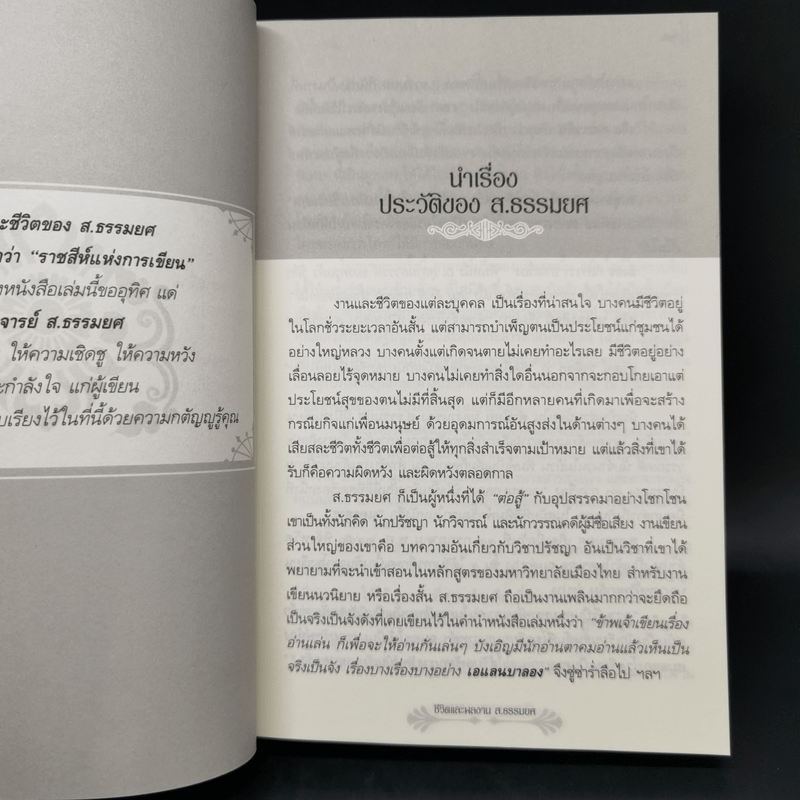 ะชีวิตของ ส.ธรรมยศ
ว่า “ราชสีห์แห่งการเขียน”
หนังสือเล่มนี้ขออุทิศ แด่
จารย์ ส.ธรรมยศ
ให้ความเชิดชู ให้ความหวัง
ะกำลังใจ แก่ผู้เขียน
บเรียงไว้ในที่นี้ด้วยความกตัญญูรู้คุณ
นำเรื่อง
ประวัติของ ส.ธรรมยศ
งานและชีวิตของแต่ละบุคคล เป็นเรื่องที่น่าสนใจ บางคนมีชีวิตอยู่
ในโลกชั่วระยะเวลาอันสั้น แต่สามารถบำเพ็ญตนเป็นประโยชน์แก่ชุมชนได้
อย่างใหญ่หลวง บางคนตั้งแต่เกิดจนตายไม่เคยทำอะไรเลย มีชีวิตอยู่อย่าง
เลื่อนลอยไร้จุดหมาย บางคนไม่เคยทำสิ่งใดอื่นนอกจากจะกอบโกยเอาแต่
ประโยชน์สุขของตนไม่มีที่สิ้นสุด แต่ก็มีอีกหลายคนที่เกิดมาเพื่อจะสร้าง
กรณียกิจแก่เพื่อนมนุษย์ ด้วยอุดมการณ์อันสูงส่งในด้านต่างๆ บางคนได้
เสียสละชีวิตทั้งชีวิตเพื่อต่อสู้ให้ทุกสิ่งสำเร็จตามเป้าหมาย แต่แล้วสิ่งที่เขาได้
รับก็คือความผิดหวัง และผิดหวังตลอดกาล
ส.ธรรมยศ ก็เป็นผู้หนึ่งที่ได้ “ต่อสู้” กับอุปสรรคมาอย่างโชกโชน
เขาเป็นทั้งนักคิด นักปรัชญา นักวิจารณ์ และนักวรรณคดีผู้มีชื่อเสียง งานเขียน
ส่วนใหญ่ของเขาคือ บทความอันเกี่ยวกับวิชาปรัชญา อันเป็นวิชาที่เขาได้
พยายามที่จะนำเข้าสอนในหลักสูตรของมหาวิทยาลัยเมืองไทย สำหรับงาน
เขียนนวนิยาย หรือเรื่องสั้น ส.ธรรมยศ ถือเป็นงานเพลินมากกว่าจะยึดถือ
เป็นจริงเป็นจังดังที่เคยเขียนไว้ในคำนำหนังสือเล่มหนึ่งว่า “ข้าพเจ้าเขียนเรื่อง
อ่านเล่น ก็เพื่อจะให้อ่านกันเล่นๆ บังเอิญมีนักอ่านตาคมอ่านแล้วเห็นเป็น
จริงเป็นจัง เรื่องบางเรื่องบางอย่าง เอแลนบาลอง” จึงซู่ซ่าร่ำลือไป ฯลฯ
ชีวิตและผลงาน ส.ธรรมยศ